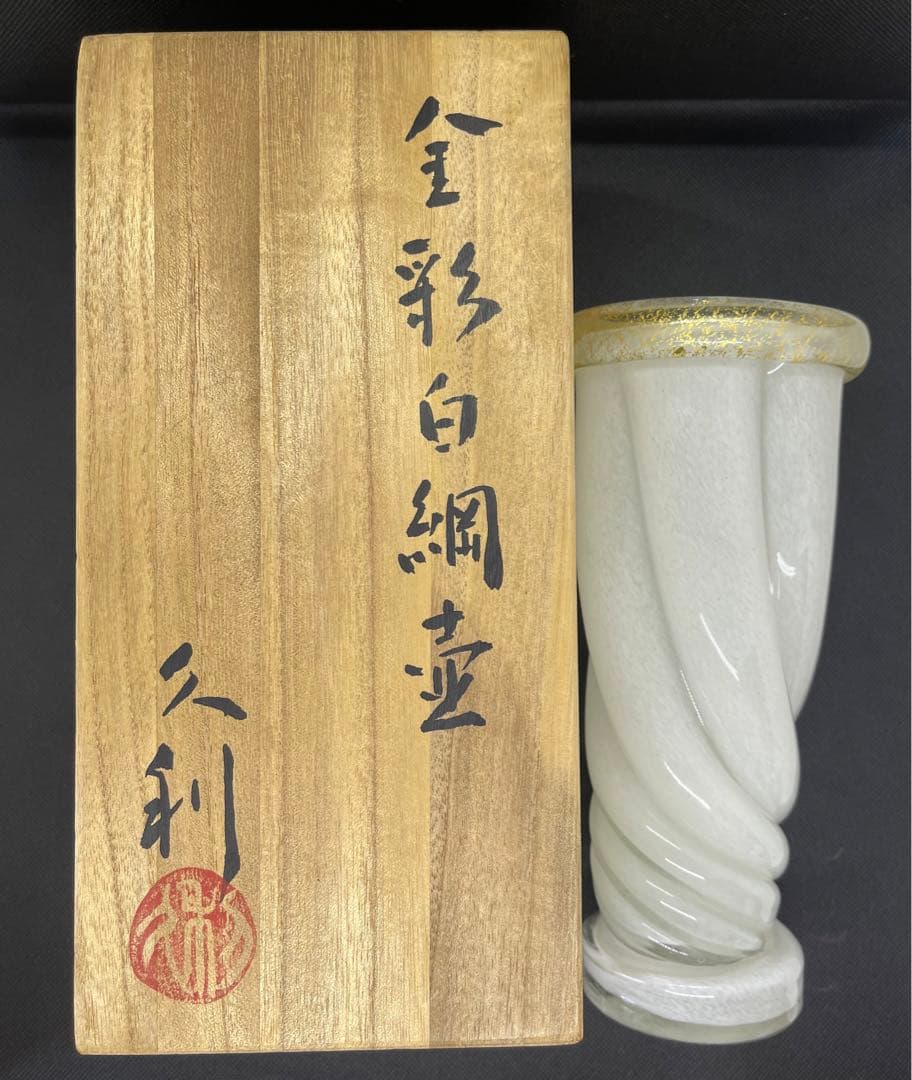 金彩白綱壺
久利